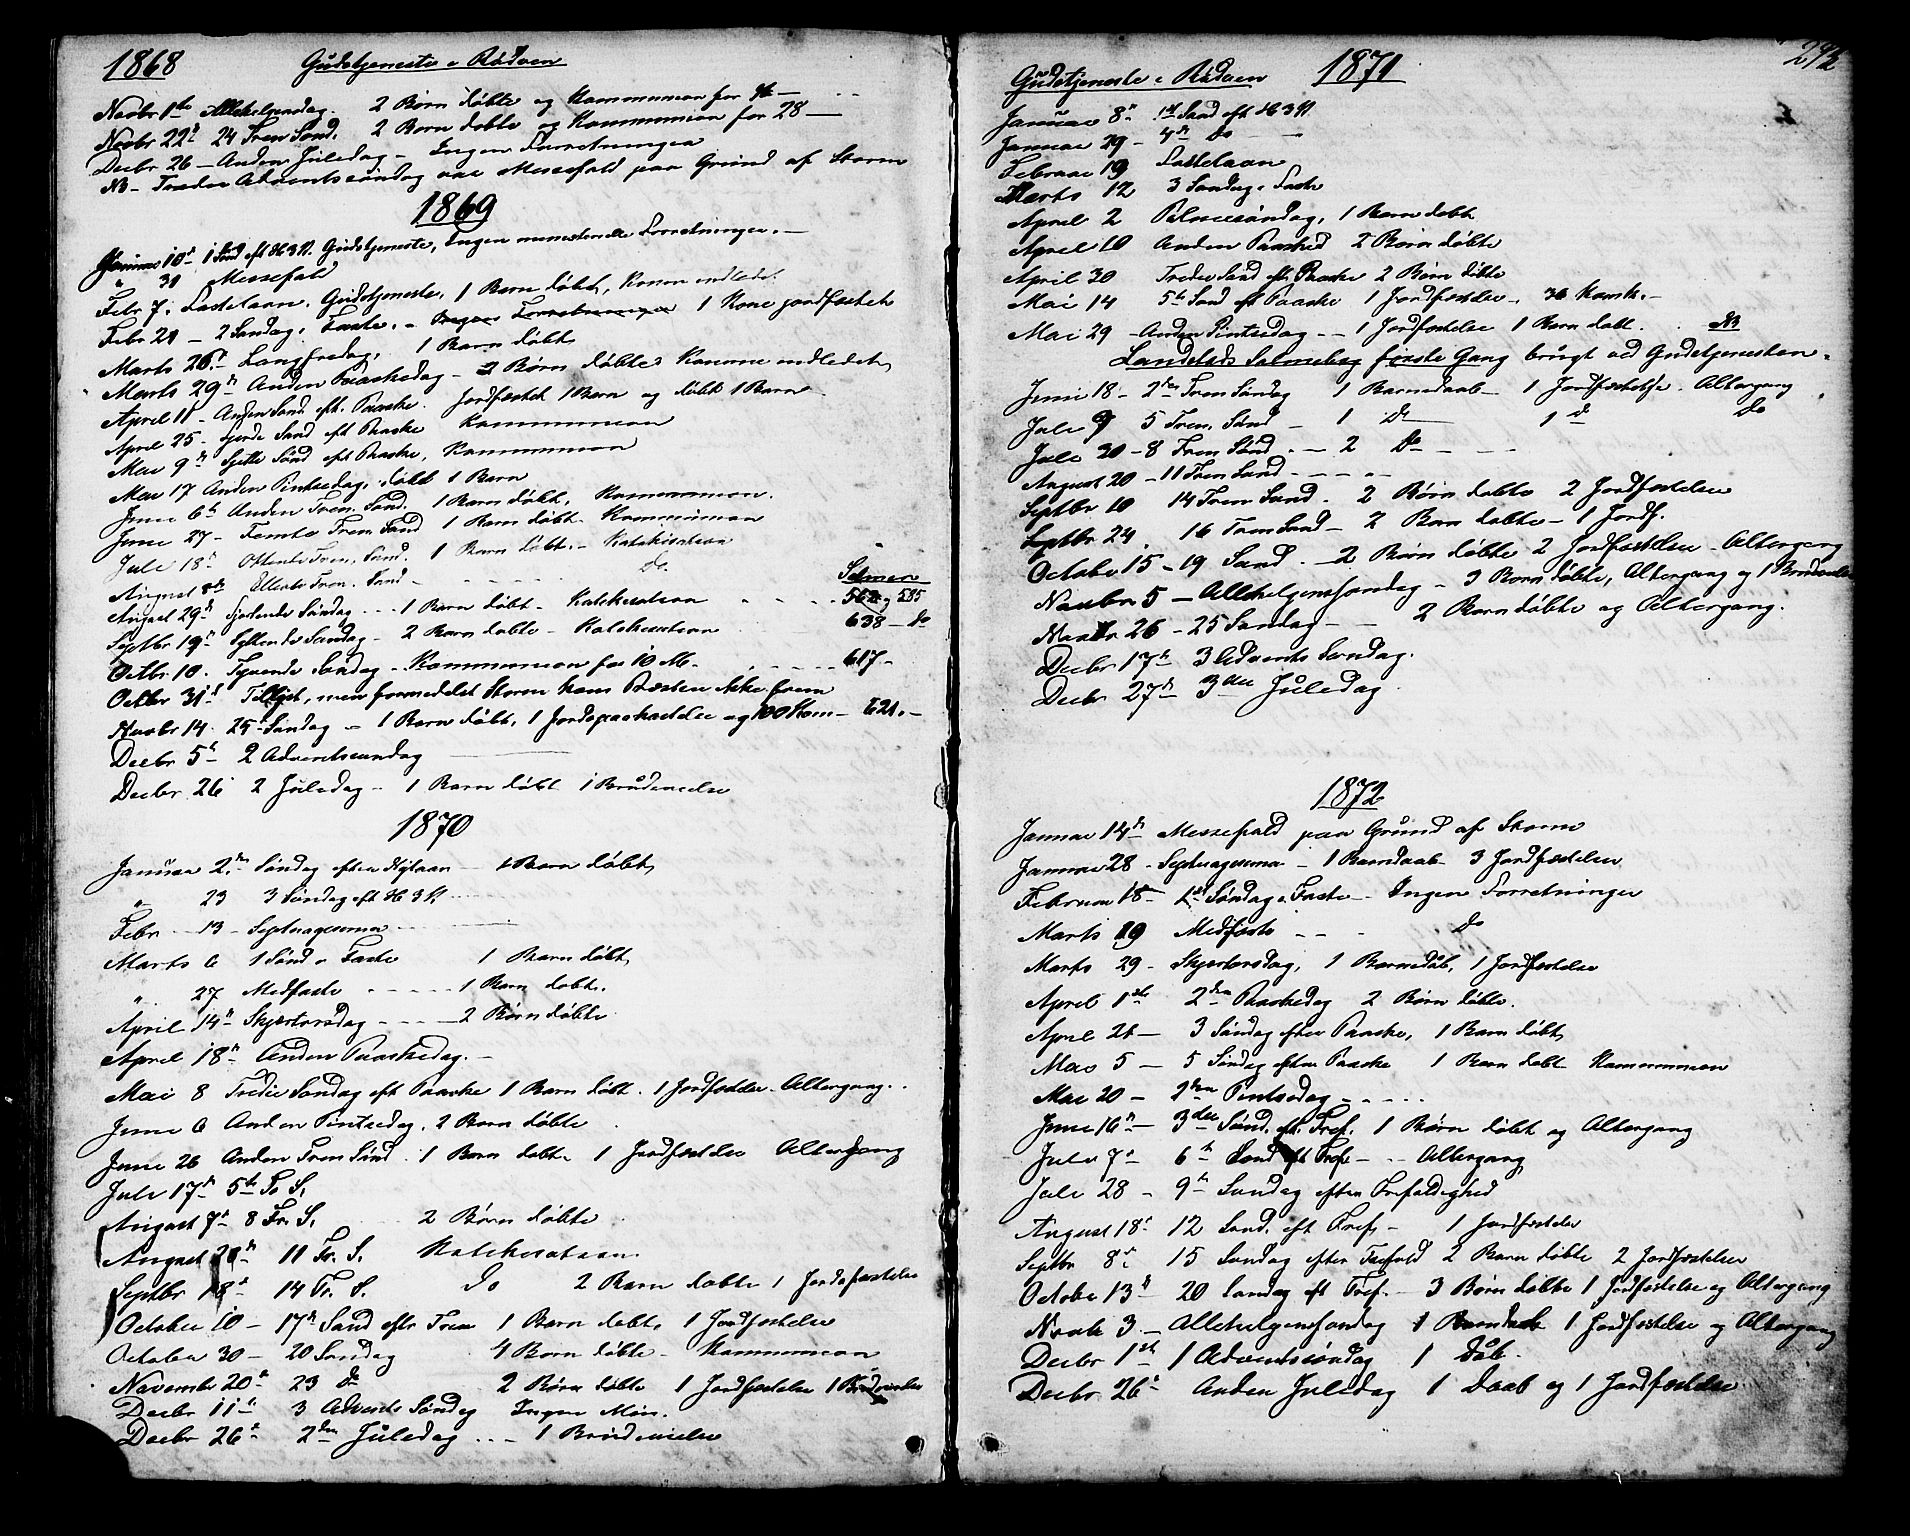 1868 Gudstjeneste i Rödven
Novbr 1ste Allehelgensdag. 2 Börn döbte og Kommunion for
Novbr 22d 24 Tren Sönd. 2 Börn döbte og Kommunion for 28 —
Decbr 26 — Anden Juledag — Ingen Forretninger
NB — Tredie Adventssöndag var Messefald paa Grund af Storm
1869
Januar 10d 1 Sönd eft H3K. Gudstjeneste, Ingen ministerielle Forretninger. —
" 31 Messefald
Febr 7. Fastelavn. Gudstjeneste, 1 Barn döbt, Konen indledet.
Febr 21 — 2 Söndag i Faste. — Ingen Forretninger 1 Kone jordfæstet
Marts 26d Langfredag, 1 Barn döbt
Marts 29d Anden Paaskedag — 2 Börn döbte Konerne indledet,
April 11 — Anden Sönd eft. Paaske. Jordfæstet 1 Barn og döbt 1 Barn
April 25 — fjerde Sönd eft Paaske Kommunion
Mai 9d Sjette Sönd eft Paaske, Kommunion
Mai 17 Anden Pintsedag, döbt 1 Barn
Juni 6d Anden Tren. Sönd. 1 Barn döbt, Kommunion.
Juni 27 — Femte Tren Sönd 1 Barn döbt — Kommunion
Juli 18d Ottende Tren. Sönd. 1 Barn döbt. — Katekisation
August 8de Ellevte Tren. Sönd — do. Salmer
August 29d Fjortende Söndag — 1 Barn döbt — Katekisation 562 og 535
Septbr 19d Syttende Söndag — 2 Börn döbte — Katekisation 638 — do
Octbr 10. Tyvende Söndag — Kommunion for 10 M — 617 —
Octbr 31d Tillyst, men formedelst Storm kom Præsten ikke frem
Novbr 14. 25d Söndag — 1 Barn döbt, 1 Jordspaakastelse og 100 Kom — 621. —
Decbr 5d 2 Adventssöndag
Decbr 26 2 Juledag — 1 Barn döbt 1 Brudevielse
1870
Januar 2den Söndag efter Nytaar — 1 Barn döbt,
" 23 3 Söndag eft H3K
Febr — 13 — Septuagesima
Marts 6 1 Sönd i Faste 1 Barn döbt,
" 27 Midfaste 1 Barn döbt.
April 14d Skjærtorsdag 2 Börn döbte
April 18d Anden Paaskedag. —
Mai 8 Tredie Söndag eft Paaske 1 Barn döbt. 1 Jordfæstelse — Altergang.
Juni 6 Anden Pintsedag. 2 Börn döbte
Juni 26 Anden Tren Sönd. 1 Barn döbt 1 Jordfæstelse Altergang
Juli 17d 5te Tr S.
August 7d 8 Tr. S. 2 Börn döbte
August 28d 11 Tr. S. Katekisation
Septbr 18d 14 Tr. S. do 2 Börn döbte 1 Jordfæstelse
October 10 — 17d Sönd eftr Tren 1 Barn döbt, 1 Jordfæstelse
October 30 — 20 Söndag 4 Börn döbte — Kommunion
November 20d 23 do 2 Börn döbte 1 Jordfæstelse 1 Brudevielse
Decbr 11d 3 Advents Söndag Ingen Min.
Decbr 26d 2den Juledag 1 Brudevielse
272
Gudstjeneste i Rödven 1871
Januar 8d 1st Sönd eft H3K
Januar 29 — 4de do
Februar 19 Fastelavn
Marts 12 3 Söndag i Faste
April 2 Palmesöndag, 1 Barn döbt
April 10 Anden Paasked 2 Börn döbte
April 30 Tredie Sönd eft Paaske 2 Börn döbte
Mai 14 5te Sönd eft Paaske 1 Jordfæstelse — 36 Komk. —
Mai 29 — Anden Pintsedag — 1 Jordfæstelse 1 Barn döbt. NB
Landstads Salmebog förste Gang brugt ved Gudstjenesten.
Juni 18 — 2den Tren Söndag 1 Barnedaab — 1 Jordfæstelse. Altergang
Juli 9 5 Tren. Sönd — 1 do 1 do do
Juli 30 — 8 Tren Sönd. — 2 do
August 20 — 11 Tren Sönd
Septbr 10 14 Tren Sönd. 2 Börn döbte 2 Jordfæstelse
Septbr 24. 16 Tren Sönd — 2 Börn döbte — 1 Jordf.
October 15 — 19 Sönd. — 2 Börn döbte 2 Jordfæstelse — Altergang
Novbr 5 — Allehelgenssöndag — 3 Börn döbte, Altergang og 1 Brudevielse
Novbr 26 — 25 Söndag — 2 Börn döbte og Altergang.
Decbr 17d 3 Advents Söndag.
Decbr 27d 3die Juledag
1872
Januar 14d Messefald paa Grund af Storm
Januar 28 — Septuagesima — 1 Barnedaab 3 Jordfæstelse
Februar 18 — 1st Söndag i Faste — Ingen Forretninger
Marts 10 Midfaste do
Marts 29 — Skjærtorsdag, 1 Barnedåb, 1 Jordfæstelse
April 1ste 2den Paaskedag 2 Börn döbte.
April 21 — 3 Söndag efter Paaske, 1 Barn döbt,
Mai 5 — 5 Söndag efter Paaske 1 Barn döbt Kommunion
Mai 20 — 2den Pintsedag
Juni 16d — 3die Sönd. eft. Tref. 1 Barn döbt og Altergang
Juli 7d 6te Sönd eft Tref — Altergang
Juli 28 — 9de Söndag efter Trefoldighed
August 18d 12 Sönd. eft Tref — 1 Jordfæstelse
Septbr 8d 15 Söndag efter Trefold 2 Börn döbte 2 Jordfæstelser
October 13d 20 Söndag eft Tref. — 3 Börn döbte 1 Jordfæstelse og Altergang
Novbr 3 — Allehelgenssöndag 1 Barndaab 1 Jordfæstelse og Altergang
Decbr 1st 1 Adventssöndag 1 Dåb.
Decbr 26d Anden Juledag 1 Daab og 1 Jordfæstelse